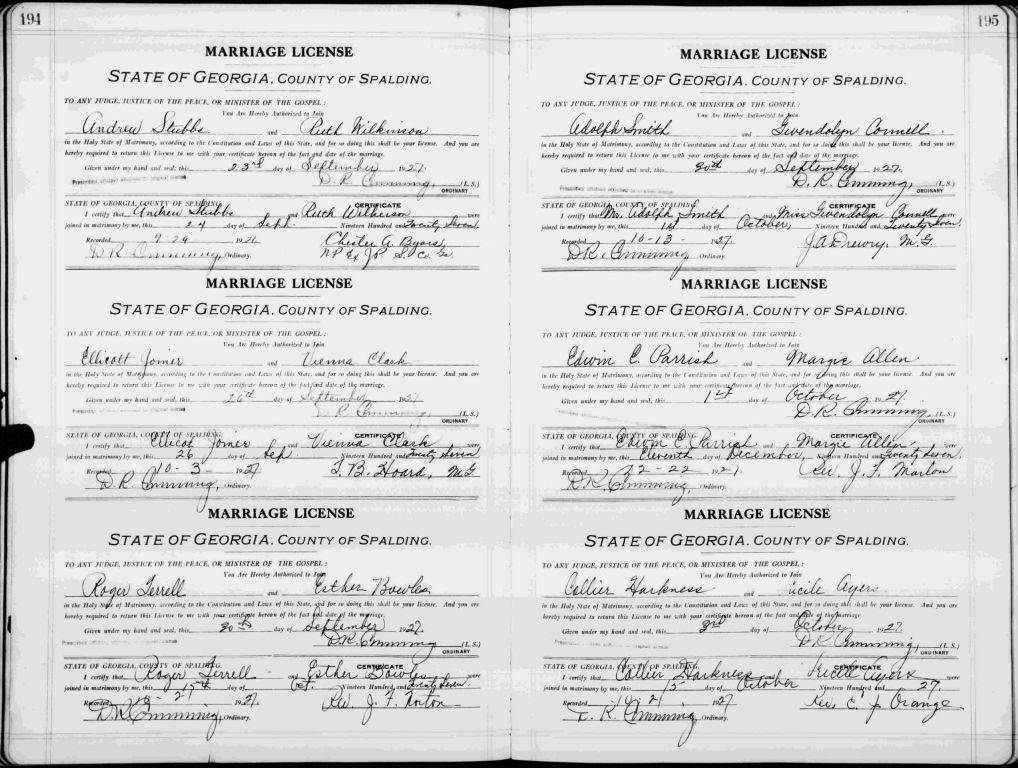 194
MARRIAGE LICENSE
STATE OF GEORGIA, COUNTY OF SPALDING.
TO ANY JUDGE, JUSTICE OF THE PEACE, OR MINISTER OF THE GOSPEL:
You Are Hereby Authorized to Join
Andrew Stubbs and Ruth Wilkinson
in the Holy State of Matrimony, according to the Constitution and Laws of this State, and for so doing this shall be your license. And you are
hereby required to return this License to me with your certificate hereon of the fact and date of the marriage.
Given under my hand and seal, this 23rd day of September 1927.
D. R. Cumming, (L. S.)
ORDINARY
STATE OF GEORGIA, COUNTY OF SPALDING. CERTIFICATE
I certify that Andrew Stubbs and Ruth Wilkinson were
joined in matrimony by me, this 24 day of Sept. Nineteen Hundred and Twenty Seven.
Recorded 9-29 192
D. R. Cumming, Ordinary. Chester A. Byars
N.P. & Ex J.P. S. Co. Ga.
MARRIAGE LICENSE
STATE OF GEORGIA, COUNTY OF SPALDING.
TO ANY JUDGE, JUSTICE OF THE PEACE, OR MINISTER OF THE GOSPEL:
You Are Hereby Authorized to Join
Ellicott Joiner and Vienna Clark
in the Holy State of Matrimony, according to the Constitution and Laws of this State, and for so doing this shall be your license. And you are
hereby required to return this License to me with your certificate hereon of the fact and date of the marriage.
Given under my hand and seal, this 26th day of September 1927
D. R. Cumming, (L. S.)
ORDINARY
STATE OF GEORGIA, COUNTY OF SPALDING. CERTIFICATE
I certify that Ellicot Joiner and Vienna Clark were
joined in matrimony by me, this 26 day of Sep. Nineteen Hundred and Twenty Seven
Recorded 10-3 1927 T. B. Hoard, M.G
D. R. Cumming, Ordinary.
MARRIAGE LICENSE
STATE OF GEORGIA, COUNTY OF SPALDING.
TO ANY JUDGE, JUSTICE OF THE PEACE, OR MINISTER OF THE GOSPEL:
You Are Hereby Authorized to Join
Roger Terrell and Esther Bowles
in the Holy State of Matrimony, according to the Constitution and Laws of this State, and for so doing this shall be your license. And you are
hereby required to return this License to me with your certificate hereon of the fact and date of the marriage.
Given under my hand and seal, this 30th day of September 1927.
D. R. Cumming (L. S.)
ORDINARY
STATE OF GEORGIA, COUNTY OF SPALDING. CERTIFICATE
I certify that Roger Terrell and Esther Bowles were
joined in matrimony by me, this 15th day of Oct. Nineteen Hundred and Twenty Seven.
Recorded 10-21 1927. Rev. J. F. Norton
D. R. Cumming, Ordinary.
195
MARRIAGE LICENSE
STATE OF GEORGIA, COUNTY OF SPALDING.
TO ANY JUDGE, JUSTICE OF THE PEACE, OR MINISTER OF THE GOSPEL:
You Are Hereby Authorized to Join
Adolph Smith and Gwendolyn Connell.
in the Holy State of Matrimony, according to the Constitution and Laws of this State, and for so doing this shall be your license. And you are
hereby required to return this License to me with your certificate hereon of the fact and date of the marriage.
Given under my hand and seal, this 30th day of September 1927.
D. R. Cumming, (L. S.)
ORDINARY
STATE OF GEORGIA, COUNTY OF SPALDING. CERTIFICATE
I certify that Mr. Adolph Smith and Miss Gwendolyn Connell were
joined in matrimony by me, this 1st day of October, Nineteen Hundred and Twenty Seven.
Recorded 10-13- 1927. J. A. Drewry, M.G.
D. R. Cumming, Ordinary.
MARRIAGE LICENSE
STATE OF GEORGIA, COUNTY OF SPALDING.
TO ANY JUDGE, JUSTICE OF THE PEACE, OR MINISTER OF THE GOSPEL:
You Are Hereby Authorized to Join
Edwin E. Parrish and Margie Allen
in the Holy State of Matrimony, according to the Constitution and Laws of this State, and for so doing this shall be your license. And you are
hereby required to return this License to me with your certificate hereon of the fact and date of the marriage.
Given under my hand and seal, this 1st day of October 1927.
D. R. Cumming, (L. S.)
ORDINARY
STATE OF GEORGIA, COUNTY OF SPALDING. CERTIFICATE
I certify that Edwin E. Parrish and Margie Allen were
joined in matrimony by me, this Eleventh day of December, Nineteen Hundred and Twenty Seven.
Recorded 12-22 1927 Rev. J. F. Marlon
D. R. Cumming, Ordinary.
MARRIAGE LICENSE
STATE OF GEORGIA, COUNTY OF SPALDING.
TO ANY JUDGE, JUSTICE OF THE PEACE, OR MINISTER OF THE GOSPEL:
You Are Hereby Authorized to Join
Collier Harkness and Lucile Ayers
in the Holy State of Matrimony, according to the Constitution and Laws of this State, and for so doing this shall be your license. And you are
hereby required to return this License to me with your certificate hereon of the fact and date of the marriage.
Given under my hand and seal, this 3rd day of October 1927
D. R. Cumming, (L. S.)
ORDINARY
STATE OF GEORGIA, COUNTY OF SPALDING. CERTIFICATE
I certify that Collier Harkness and Lucile Ayers were
joined in matrimony by me, this 15 day of October Nineteen Hundred and 27.
Recorded 1927 Rev. C. P. Orange
D. R. Cumming, Ordinary.